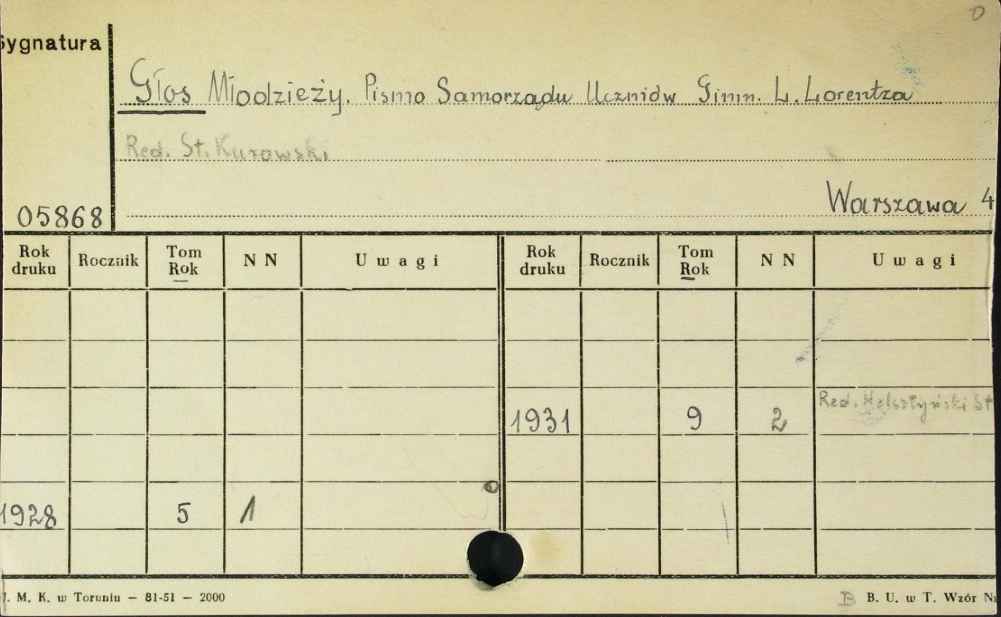 0
Sygnatura
Głos Młodzieży. Pismo Samorządu Uczniów Gimn. L. Lorentza
Red. St. Kurowski
05868
Warszawa 4
Rok druku Rocznik Tom Rok N N Uwagi Rok druku Rocznik Tom Rok N N Uwagi
1931 9 2 Red. Helsztyński St
1928 5 1
J. M. K. w Toruniu — 81-51 — 2000
B B. U. w T. Wzór Nr